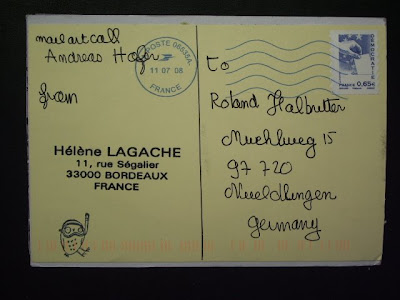 mail art call
Andreas Hofer
from
Hélène LAGACHE
11, rue Ségalier
33000 BORDEAUX
FRANCE
LA POSTE
11 07 08
FRANCE
DEMOCRATIE
FRANCE 0,65€
to
Roland Halbritter
Muehlweg 15
97 720
Nuedlingen
Germany